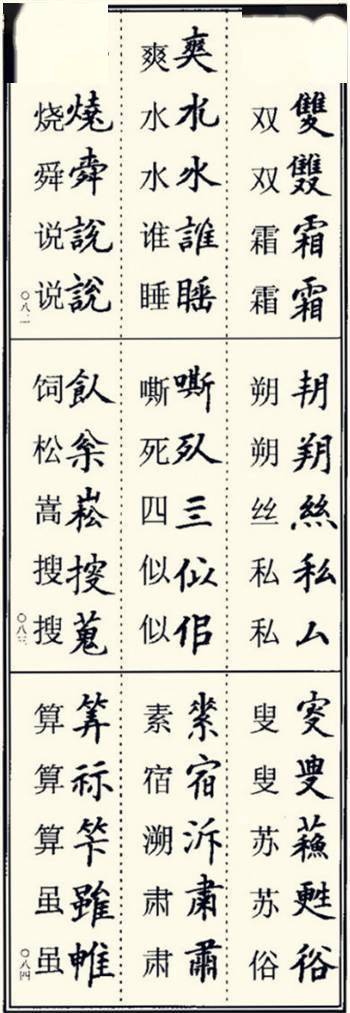 雙雙霜霜
双双霜霜
水水誰睡
爽水水谁睡
燒舜說說
烧舜说说
〇八二
絲私厶
朔朔丝私私
嘶亖似佀
嘶死四似似
飤枀崧搜蒐
饲松嵩搜搜
〇八三
叜叟蘓甦俗
叟叟苏苏俗
宿泝肅肅
素宿溯肃肃
筭祘笇雖
算算算虽虽
〇八四